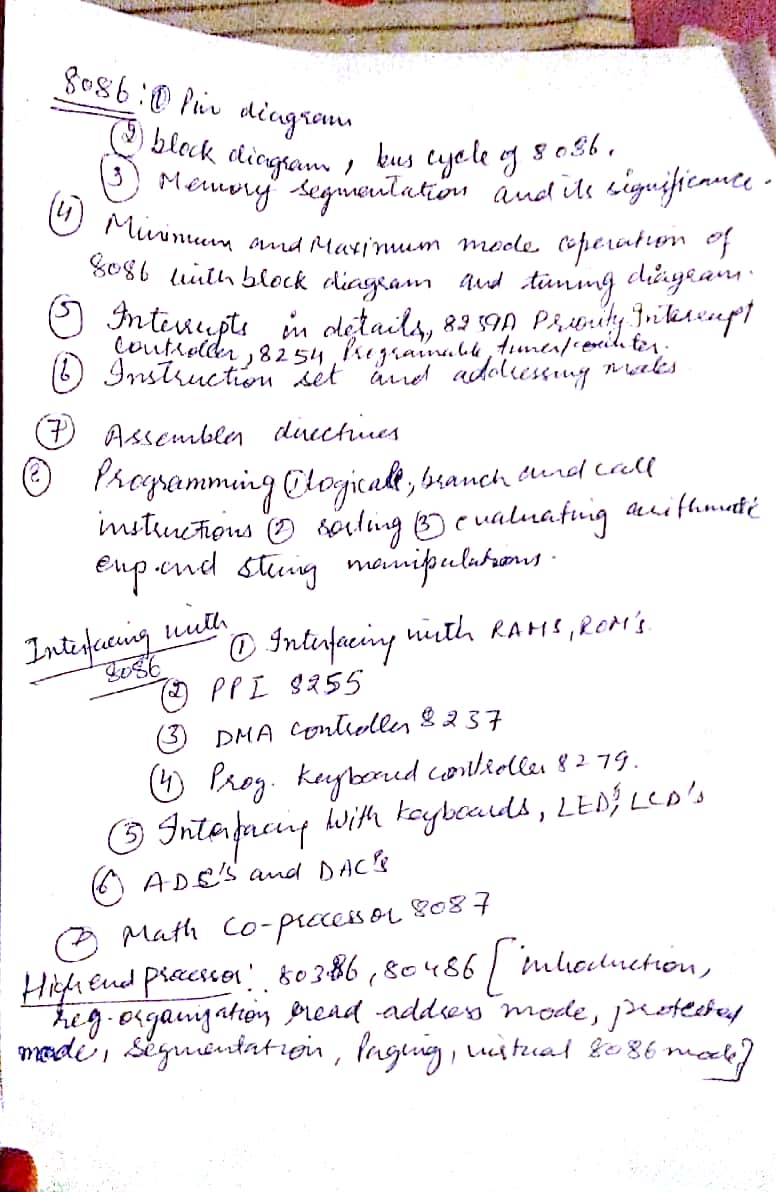 8086: ① Pin diagram
② block diagram, bus cycle of 8086.
③ Memory segmentation and its significance.
④ Minimum and Maximum mode operation of
8086 with block diagram and timing diagram.
⑤ Interrupts in details, 8259A Priority Interrupt
controller, 8254 Programable timer/counter.
⑥ Instruction set and addressing modes
⑦ Assembler directives
⑧ Programming ① logical, branch and call
instructions ② sorting ③ evaluating arithmetic
exp. and string manipulations.
Interfacing with ① Interfacing with RAMS, ROM's.
8086
② PPI 8255
③ DMA controller 8237
④ Prog. keyboard controller 8279.
⑤ Interfacing with keyboards, LED's, LCD's
⑥ ADC's and DAC's
⑦ Math Co-processor 8087
High end processor: 80386, 80486 [introduction,
reg. organization, read address mode, protected
mode, segmentation, Paging, virtual 8086 mode]